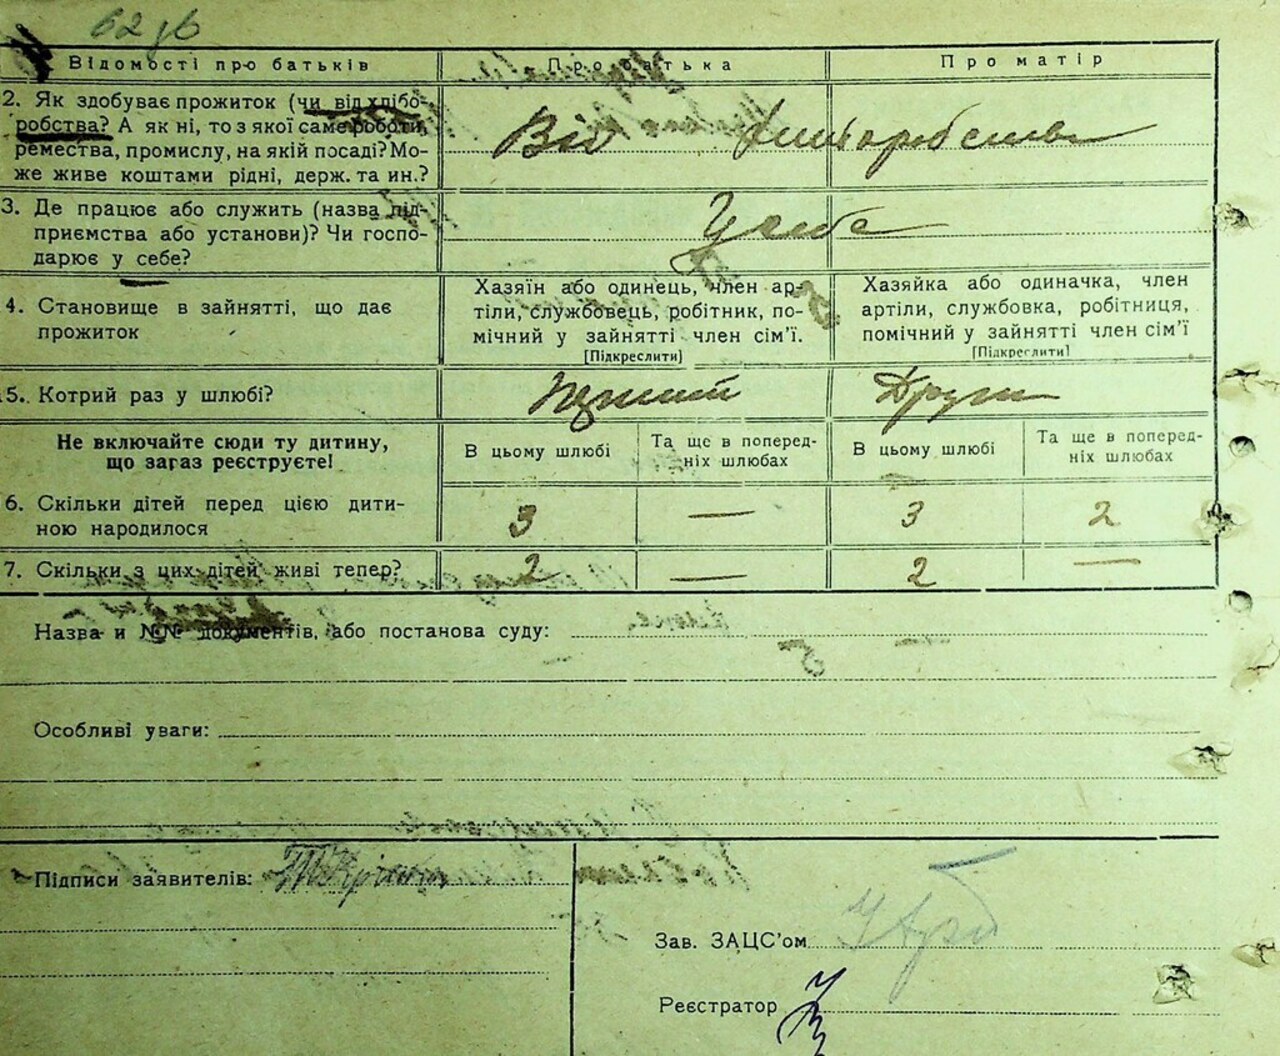 62 зв
Відомості про батьків Про батька Про матір
2. Як здобуває прожиток (чи від хлібо-
робства? А як ні, то з якої саме роботи,
ремества, промислу, на якій посаді? Мо-
же живе коштами рідні, держ. та ин.?
Від хліборобства
3. Де працює або служить (назва під-
приємства або установи)? Чи госпо-
дарює у себе?
У себе
4. Становище в зайнятті, що дає
прожиток
Хазяїн або одинець, член ар-
тіли, службовець, робітник, по-
мічний у зайнятті член сім'ї.
[Підкреслити]
Хазяйка або одиначка, член
артіли, службовка, робітниця,
помічний у зайнятті член сім'ї
[Підкреслити]
5. Котрий раз у шлюбі? Перший Другий
Не включайте сюди ту дитину,
що зараз реєструєте!
В цьому шлюбі
Та ще в поперед-
ніх шлюбах
В цьому шлюбі
Та ще в поперед-
ніх шлюбах
6. Скільки дітей перед цією дити-
ною народилося
3 — 3 2
7. Скільки з цих дітей живі тепер? 2 — 2 —
Назва и №№ документів, або постанова суду:
Особливі уваги:
Підписи заявителів:
Зав. ЗАЦС'ом
Реєстратор